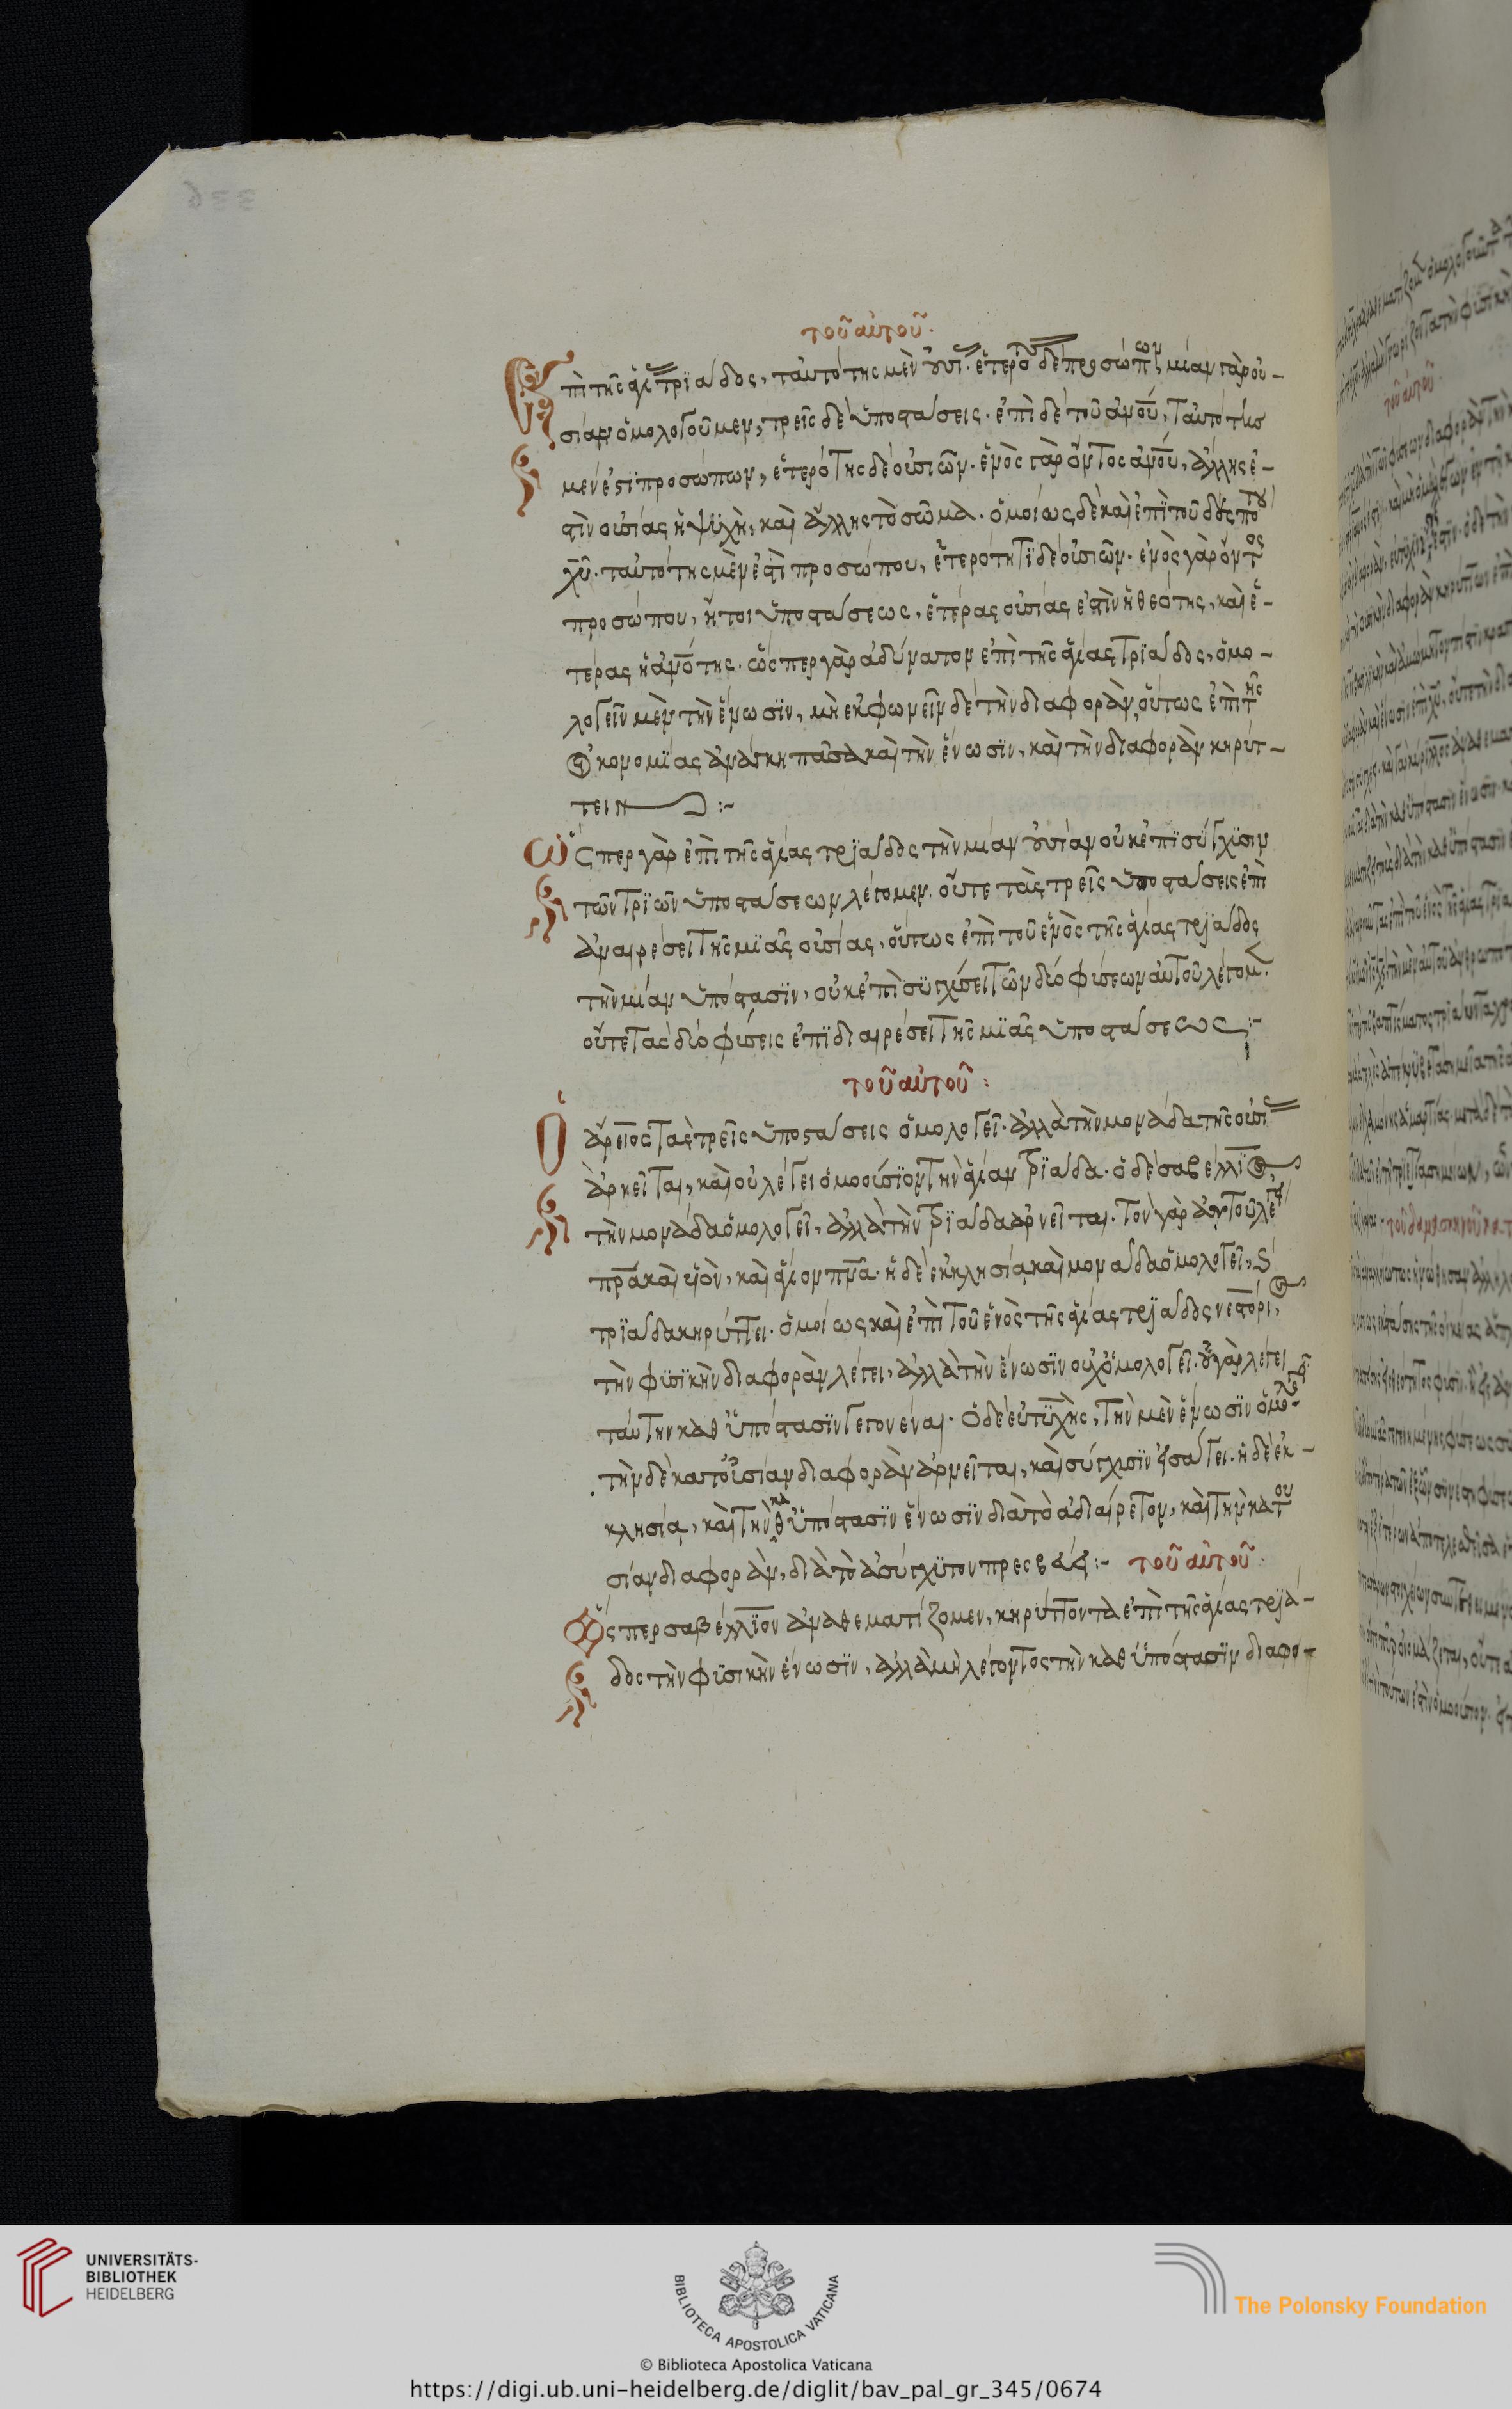 τοῦ αὐτοῦ·
Ἐπὶ τῆς ἁγί τριάδος, ταυτότης μὲν οὐσί· ἑτερό δὲ προσώπων, μίαν γὰρ οὐ-
σίαν ὁμολογοῦμεν, τρεῖς δὲ ὑποστάσεις· ἐπὶ δὲ τοῦ ἀνου, ταυτότης
μέν ἐστι προσώπων, ἑτερότης δὲ οὐσιῶν· ἑνὸς γὰρ ὄντος ἀνου, ἄλλης ἐ-
στὶν οὐσίας ἡ ψυχὴ, καὶ ἄλλης τὸ σῶμα· ὁμοίως δὲ καὶ ἐπὶ τοῦ δεσπότου
χυ· ταυτότης μὲν ἐστὶ προσώπου, ἑτερότητι δὲ οὐσιῶν· ἑνὸς γὰρ ὄντος
προσώπου, ἤτοι ὑποστάσεως, ἑτέρας οὐσίας ἐστὶν ἡ θεότης, καὶ ἑ-
τέρας ἡ ἀνότης· ὥσπερ γὰρ ἀδύνατον ἐπὶ τῆς ἁγίας τριάδος, ὁμο-
λογεῖν μὲν τὴν ἕνωσιν, μὴ ἐκφωνεῖν δὲ τὴν διαφορὰν, οὕτως ἐπὶ τῆς
οἰκονομίας ἀνάγκη πᾶσα καὶ τὴν ἕνωσιν, καὶ τὴν διαφορὰν κηρύτ-
τειν :-
Ὥσπερ γὰρ ἐπὶ τῆς ἁγίας τριάδος τὴν μίαν οὐσίαν οὐκ ἐπὶ σύγχυσιν
τῶν τριῶν ὑποστάσεων λέγομεν· οὔτε τὰς τρεῖς ὑποστάσεις ἐπὶ
ἀναιρέσει τῆς μιᾶς οὐσίας, οὕτως ἐπὶ τοῦ ἑνὸς τῆς ἁγίας τριάδος
τὴν μίαν ὑπόστασιν, οὐκ ἐπὶ συγχύσει τῶν δύο φύσεων αὐτοῦ λέγομ·
οὔτε τὰς δύο φύσεις ἐπὶ διαιρέσει τῆς μιᾶς ὑποστάσεως :-
τοῦ αὐτοῦ :
Ὁ ἄρειος τὰς τρεῖς ὑποστάσεις ὁμολογεῖ· ἀλλὰ τὴν μονάδα τῆς οὐσί
ἀρνεῖται, καὶ οὐ λέγει ὁμοούσιον τὴν ἁγίαν τριάδα· ὁ δὲ σαβέλλιος,
τὴν μονάδα ὁμολογεῖ, ἀλλὰ τὴν τριάδα ἀρνεῖται· τὸν γὰρ αὐτοῦ λέγει
πρα καὶ υἱὸν, καὶ ἅγιον πνα· ἡ δὲ ἐκκλησία, καὶ μονάδα ὁμολογεῖ, ϛ
τριάδα κηρύττει· ὁμοίως καὶ ἐπὶ τοῦ ἑνὸς τῆς ἁγίας τριάδος νεστόριος,
τὴν φυσικὴν διαφορὰν λέγει, ἀλλὰ τὴν ἕνωσιν οὐχ ὁμολογεῖ· οὐ γὰρ λέγει
ταύτην καθ' ὑπόστασιν γεγονέναι· ὁ δὲ εὐτυχὴς, τὴν μὲν ἕνωσιν ὁμολογεῖ·
τὴν δὲ κατ' οὐσίαν διαφορὰν ἀρνεῖται, καὶ σύγχυσιν εἰσάγει· ἡ δὲ ἐκ-
κλησία, καὶ τὴν καθ' ὑπόστασιν ἕνωσιν διὰ τὸ ἀδιαίρετον, καὶ τὴν κατ' οὐ
σίαν διαφορὰν, διὰ τὸ ἀσύγχυτον πρεσβεύει :- τοῦ αὐτοῦ·
Ὥσπερ σαβέλλιον ἀναθεματίζομεν, κηρύττοντα ἐπὶ τῆς ἁγίας τριά-
δος τὴν φυσικὴν ἕνωσιν, ἀλλὰ μὴ λέγοντος τὴν καθ' ὑπόστασιν διαφο-
UNIVERSITÄTS-
BIBLIOTHEK
HEIDELBERG
BIBLIOTECA APOSTOLICA VATICANA
The Polonsky Foundation
© Biblioteca Apostolica Vaticana
https://digi.ub.uni-heidelberg.de/diglit/bav_pal_gr_345/0674